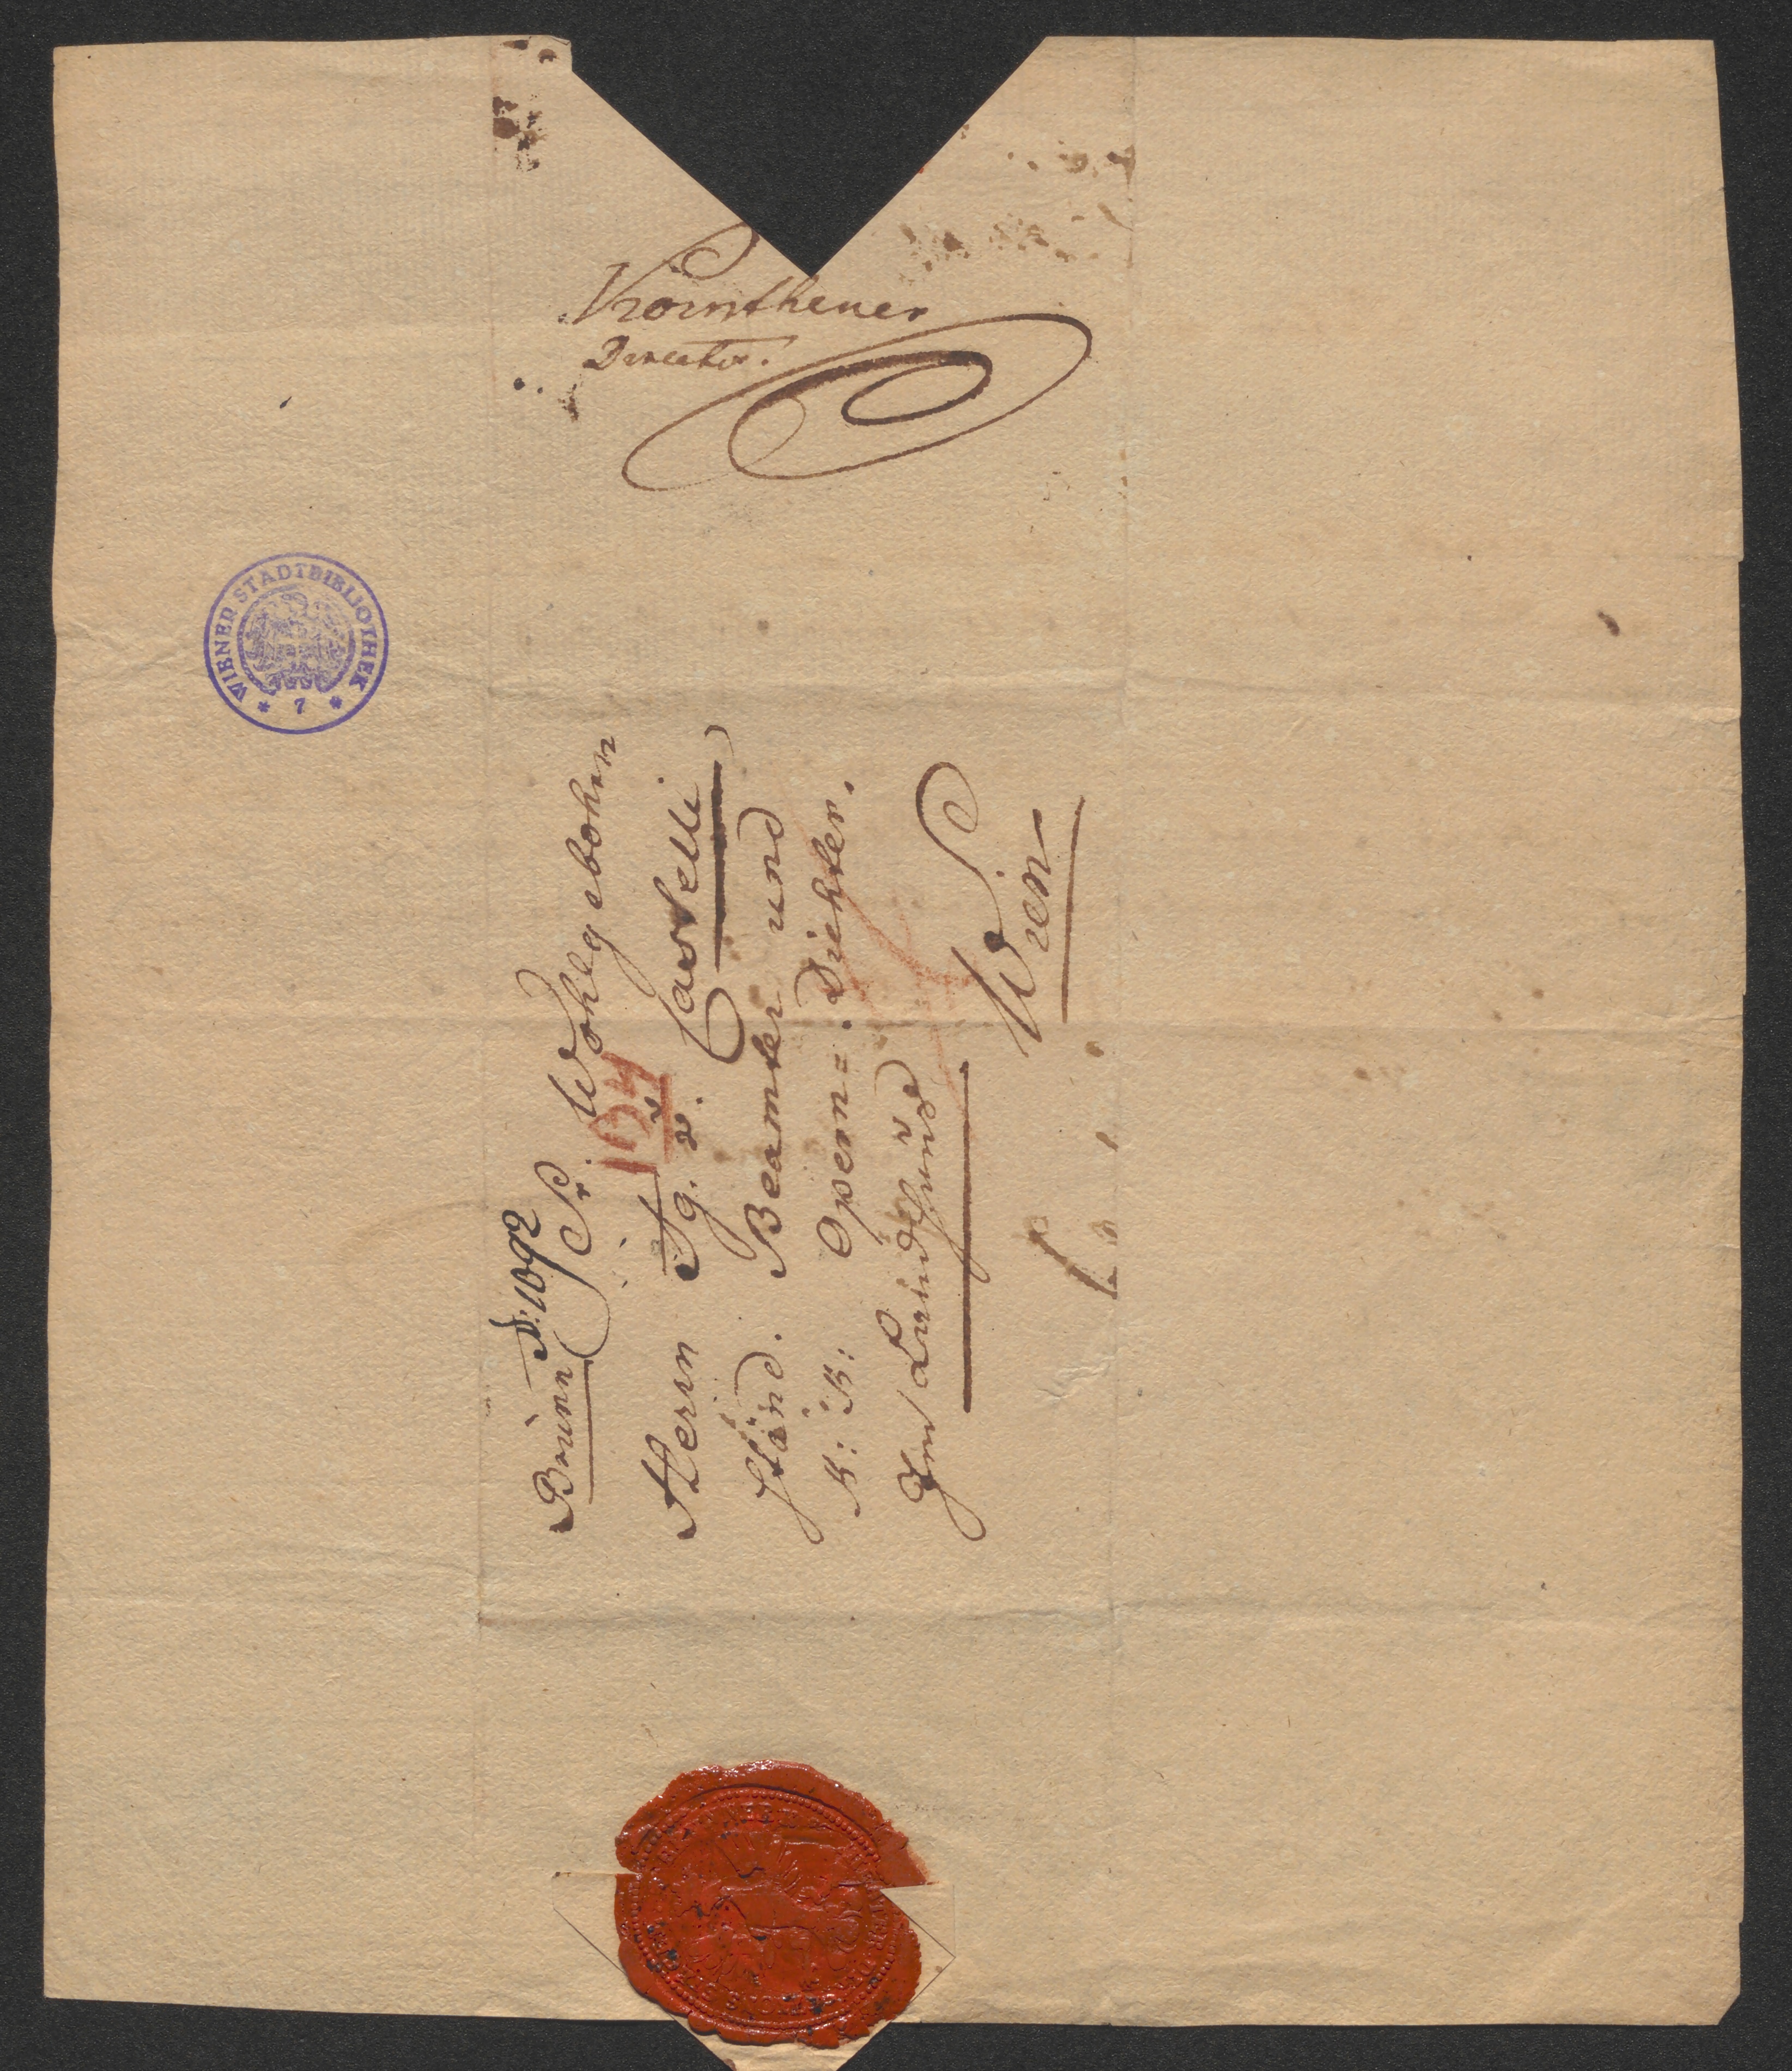 Korntheuer
Director.
WIENER STADTBIBLIOTHEK
* 7 *
Brünn
N: 1092
Sr. Wohlgebohrn
104
Herrn Ig. v. Castelli
Länd. Beamter und
K: K: Opern=. Dichter.
Wien